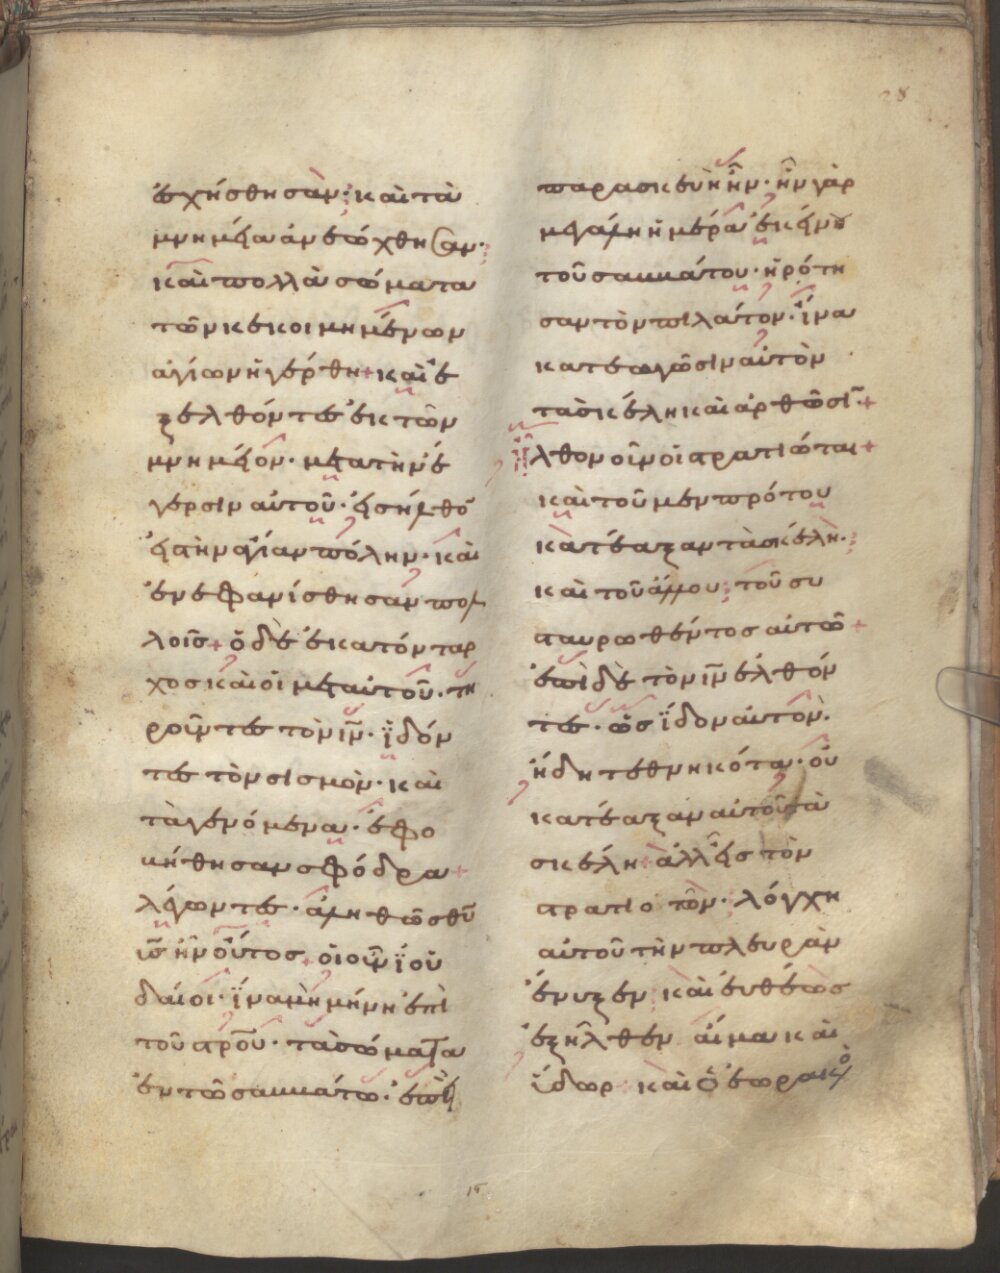 28
ἐσχήσθησὰν· καὶ τὰ
μνημεία ἀνεώχθησαν·
καὶ πολλὰ σώματα
τῶν κεκοιμημένων
ἁγίων ἠγέρθη+ καὶ ἐ
ξελθόντες ἐκ τῶν
μνημείον· μετα τὴν ἔ
γερσιν αὐτοῦ· εἰσήλθο̄
εἰς τὴν ἁγίαν πόλην· καὶ
ἐνεφανίσθησαν πολ
λοῖς+ ὁ δὲ ἑκατόνταρ
χος καὶ οἱ μετ αὐτοῦ· τη
ροῦντες τὸν ἰν̄· ἰδόν
τες τὸν σισμὸν· καὶ
τὰ γενόμενα· ἐφο
βήθησαν σφόδρα+
λέγοντες· ἀληθῶς θῡ
ῡς ἦν οὗτος+ οἱ οῦν ἰου
δαίοι· ἵνα μὴ μήνη ἐπὶ
τοῦ στρ̄ου· τὰ σώματα
ἐν τῶ σαββάτω· ἐπεὶ
παρασκευὴ ἦν· ἦν γὰρ
μεγάλη ἡ μέρα ἐκείνου
τοῦ σαββάτου· ἠρότη
σαν τὸν πιλάτον· ἵνα
κατεαγῶσιν αὐτὸν
τὰ σκέλη καὶ ἀρθῶσῑ+
Ἦλθον οὖν οἱ στρατιώται+
καὶ τοῦ μεν πρότου
κατέαξαν τὰ σκέλη·
καὶ τοῦ ἄλλου· τοῦ συ
σταυρωθέντος αὐτῶ+
ἐπὶ δὲ τὸν ἰν̄ ἐλθόν
τες· ὡς ἴδον αὐτὸν·
ἤδη τεθνηκότα· οὐ
κατέαξαν αὐτοῦ τὰ
σκέλη+ ἀλλ εἷς τὸν
στρατιοτῶν· λόγχη
αὐτοῦ τὴν πλευρὰν
ἔνυξεν· καὶ ευθέως
ἐξῆλθεν αἵμα καὶ
ὕδωρ· καὶ ὁ ἑωρακὸ